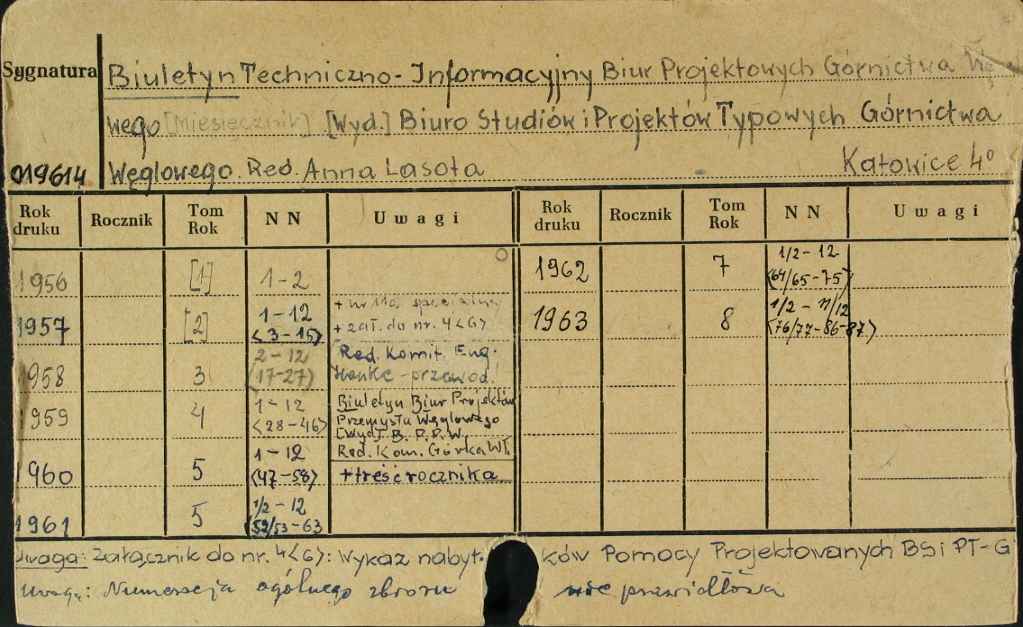 Sygnatura
Biuletyn Techniczno-Informacyjny Biur Projektowych Górnictwa Wę
wego [Miesięcznik] [Wyd.] Biuro Studiów i Projektów Typowych Górnictwa
019614 Węglowego. Red. Anna Lasota Katowice 4°
Rok druku Rocznik Tom Rok NN Uwagi Rok druku Rocznik Tom Rok NN Uwagi
1956 [1] 1-2
1957 [2] 1-12 <3-15> + nr specjalny + zał. do nr. 4<6>
1958 3 2-12 <17-27> Red. Komit. Eug. Hanke - przewod.
1959 4 1-12 <28-46> Biuletyn Biur Projektów Przemysłu Węglowego [Wyd]. B. P. P. W. Red. Kom. Górka Wł.
1960 5 1-12 <47-58> + treść rocznika
1961 5 1/2-12 <52/53-63
1962 7 1/2-12 <64/65-75>
1963 8 1/2-11/12 <76/77-86-87>
Uwaga: Załącznik do nr. 4<6>: Wykaz nabyt ków Pomocy Projektowanych BSi PT-G
Uwaga: Numeracja ogólnego zbioru nieprawidłowa